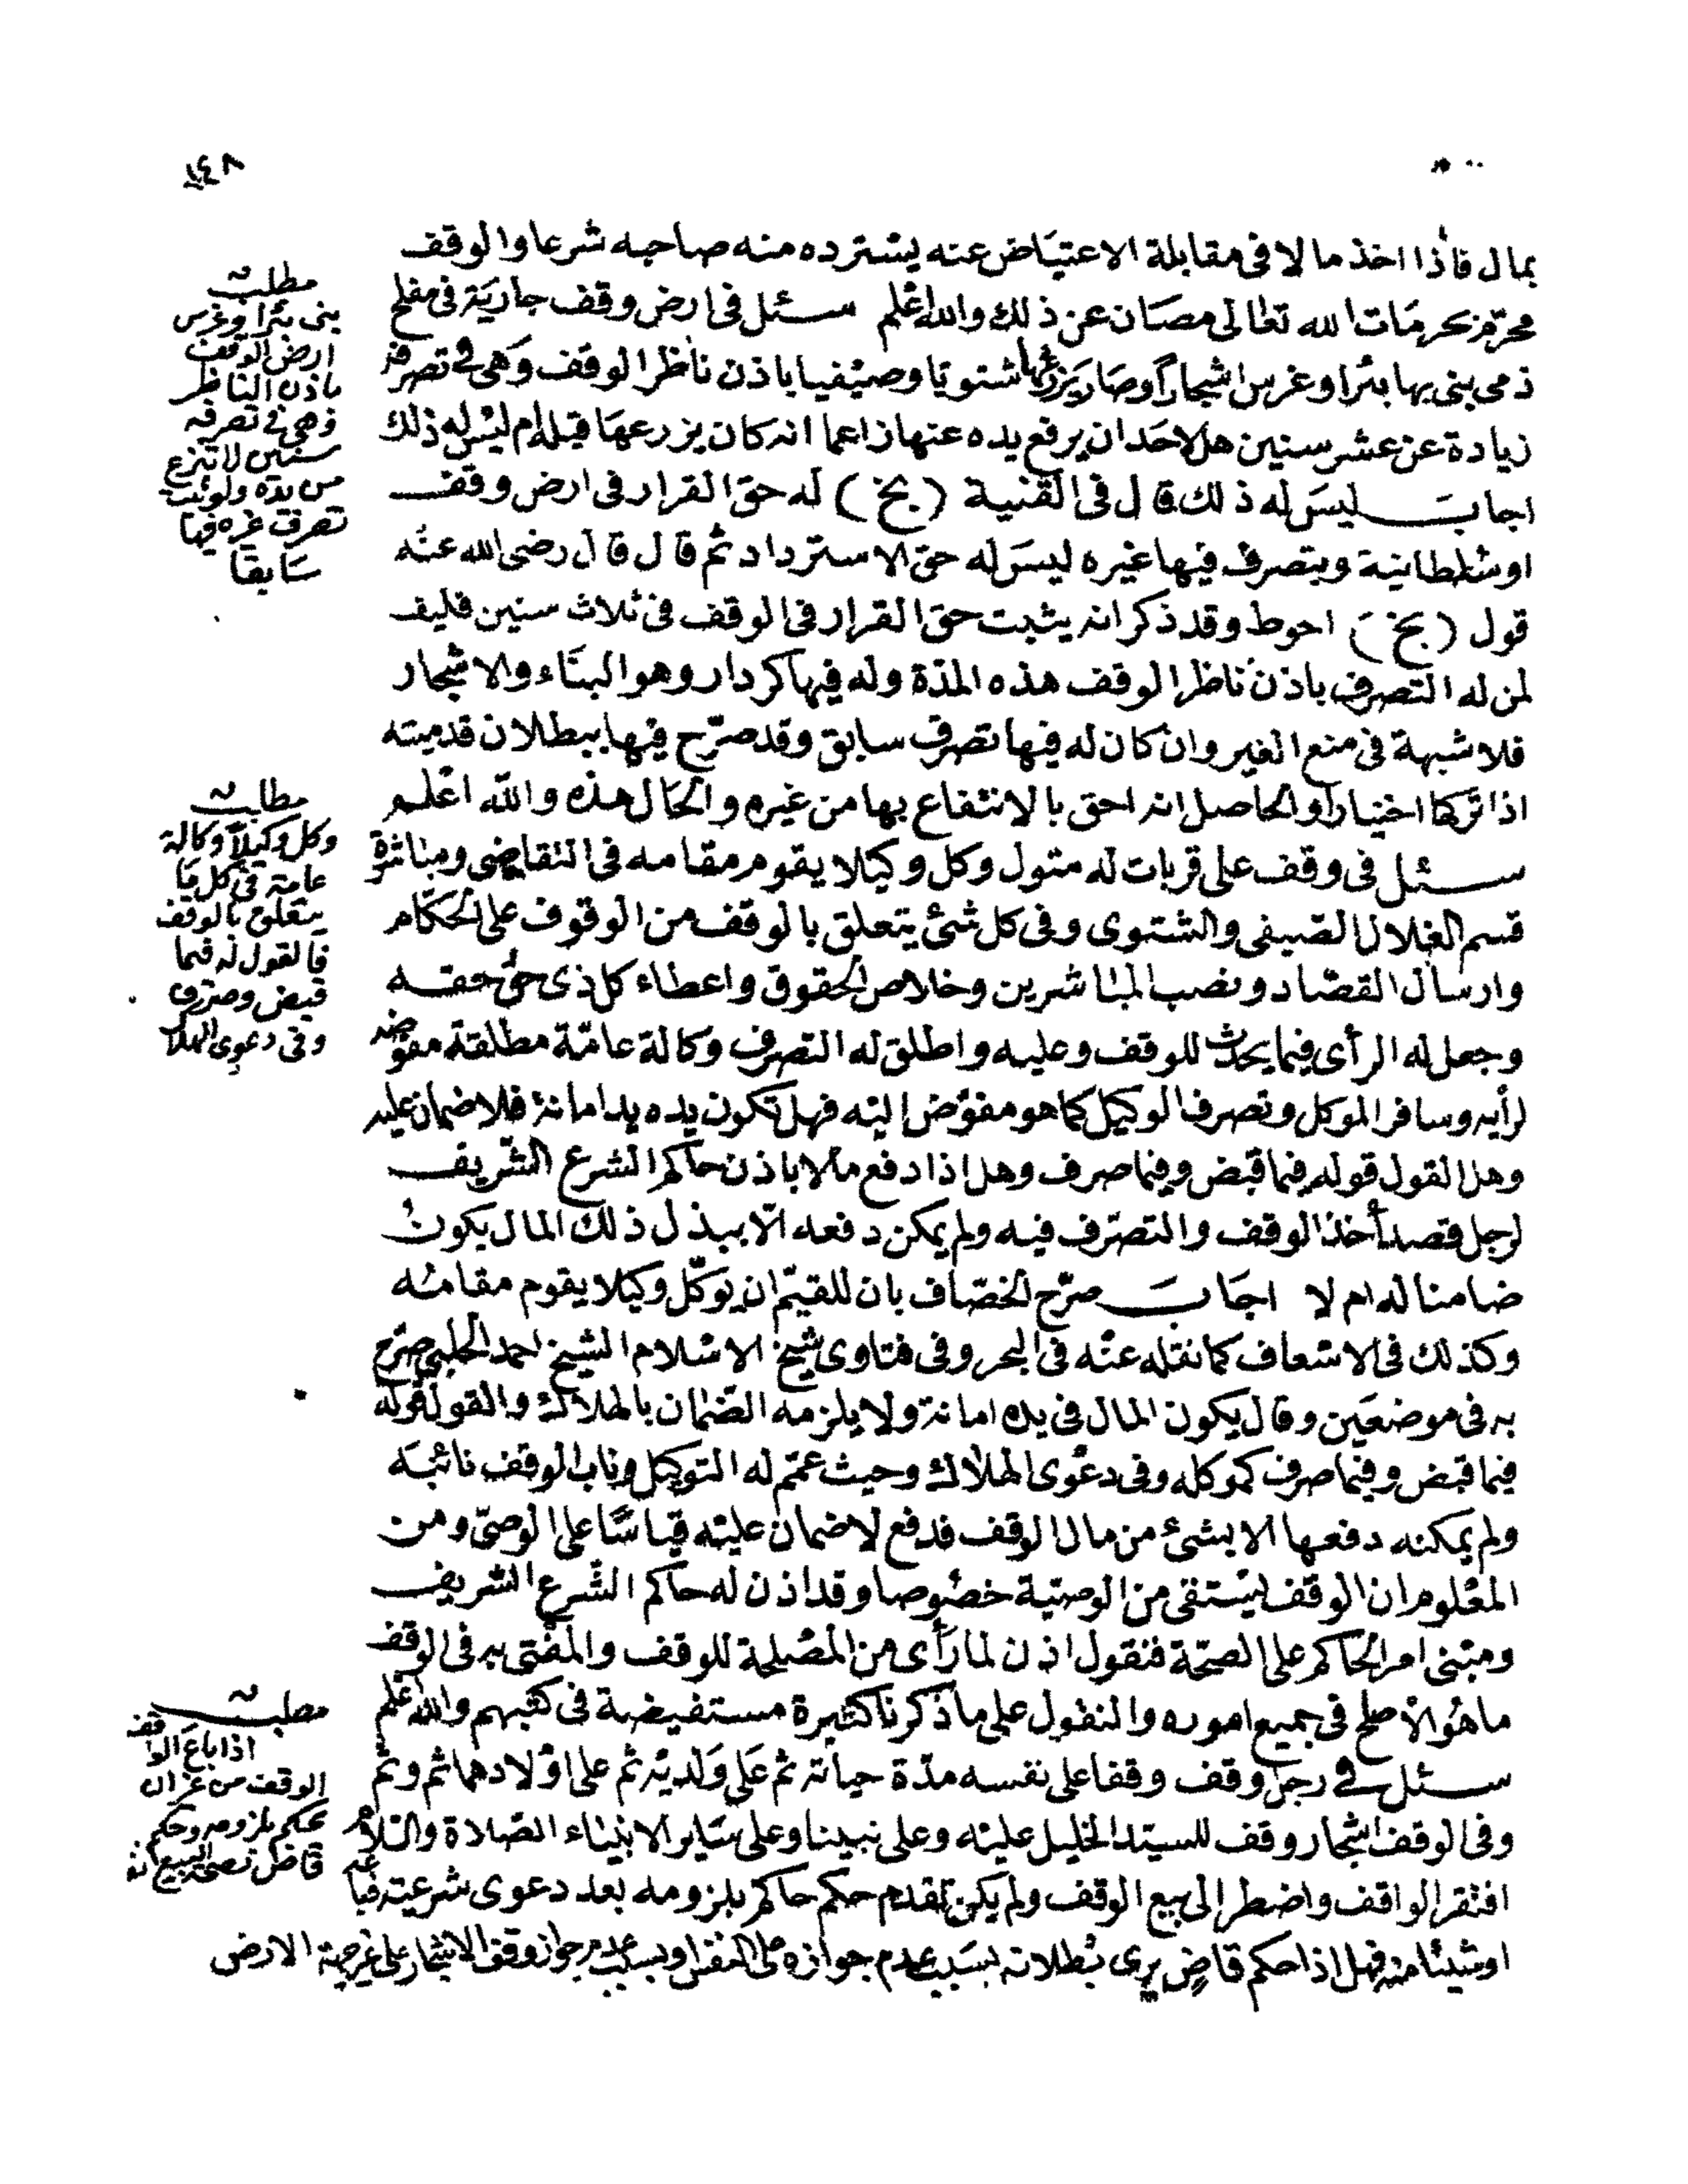 ١٤٨
بمال فاذا اخذ مالا فى مقابلة الاعتياض عنه يسترده منه صاحبه شرعا والوقف
محرّم بحرمات الله تعالى مصان عن ذلك والله اعلم سئل فى ارض وقف جارية فى مفلح
ذمى بنى بها بئرا وغرس اشجاراً وصار يزرعها شتويا وصيفيا باذن ناظر الوقف وهى فى تصرفه
زيادة عن عشر سنين هل لاحد ان يرفع يده عنها زاعما انه كان يزرعها قبله ام ليس له ذلك
اجاب ليس له ذلك قال فى القنية (بخ) له حق القرار فى ارض وقف
او سلطانية ويتصرف فيها غيره ليس له حق الاسترداد ثم قال قال رضى الله عنه
قول (بخ) احوط وقد ذكر انه يثبت حق القرار فى الوقف فى ثلاث سنين فليف
لمن له التصرف باذن ناظر الوقف هذه المدّة وله فيها كردار وهو البناء والاشجار
فلا شبهة فى منع الغير وان كان له فيها تصرف سابق وقد صرّح فيها ببطلان قدميته
اذا تركها اختيارا والحاصل انه احق بالانتفاع بها من غيره والحال هذه والله اعلم
سئل فى وقف على قربات له متول وكل وكيلا يقوم مقامه فى التقاضى ومباشرة
قسم الغلال الصيفى والشتوى وفى كل شئ يتعلق بالوقف من الوقوف على الحكّام
وارسال القصّاد ونصب المباشرين وخلاص الحقوق واعطاء كل ذى حق حقه
وجعل له الرأى فيما يحدث للوقف وعليه واطلق له التصرف وكالة عامّة مطلقة مفوضه
لرأيه وسافر الموكل وتصرف الوكيل كما هو مفوّض اليه فهل تكون يده يد امانة فلا ضمان عليه
وهل القول قوله فيما قبض وفيما صرف وهل اذا دفع مالا باذن حاكم الشرع الشريف
لرجل قصد أخذ الوقف والتصرّف فيه ولم يمكن دفعه الّا ببذل ذلك المال يكون
ضامنا له ام لا اجاب صرّح الخصّاف بان للقيّم ان يوكّل وكيلا يقوم مقامه
وكذلك فى الاسعاف كما نقله عنه فى البحر وفى فتاوى شيخ الاسلام الشيخ احمد الحلبى صرّح
به فى موضعين وقال يكون المال فى يده امانة ولا يلزمه الضمان بالهلاك والقول قوله
فيما قبض وفيما صرف كموكله وفى دعوى الهلاك وحيث عمّم له التوكيل وناب الوقف نائبة
ولم يمكنه دفعها الا بشئ من مال الوقف فدفع لا ضمان عليه قياسًا على الوصىّ ومن
المعلوم ان الوقف يستقى من الوصيّة خصوصا وقد اذن له حاكم الشّرع الشريف
ومبنى امر الحاكم على الصحّة فنقول اذن لما رأى من المصلحة للوقف والمفتى به فى الوقف
ما هو الأصلح فى جميع اموره والنقول على ما ذكرنا كثيرة مستفيضة فى كتبهم والله اعلم
سئل فى رجل وقف وقفا على نفسه مدّة حياته ثم على ولديه ثم على اولادهما ثم وثم
وفى الوقف اشجار وقف للسيّد الخليل عليه وعلى نبينا وعلى سائر الانبياء الصّلاة والسّلام
افتقر الواقف واضطر الى بيع الوقف ولم يكن تقدم حكم حاكم بلزومه بعد دعوى شرعيّة فباعه
او شيئا منه فهل اذا حكم قاضٍ يرى بطلانه بسبب عدم جوازه على النفس او بسبب عدم جواز وقف الاشجار على غير جهة الارض
مطلب
بنى بئرا وغرس
ارض الوقف
باذن الناظر
وهى فى تصرفه
سنين لا تنزع
من يده ولو ثبت
تصرف غيره فيها
سابقا
مطلب
وكل وكيلاً وكالة
عامة فى كل ما
يتعلق بالوقف
فالقول له فيما
قبض وصرف
وفى دعوى الهلاك
مطلب
اذا باع الواقف
الوقف من غير ان
يحكم بلزومه وحكم
قاض بصحة البيع